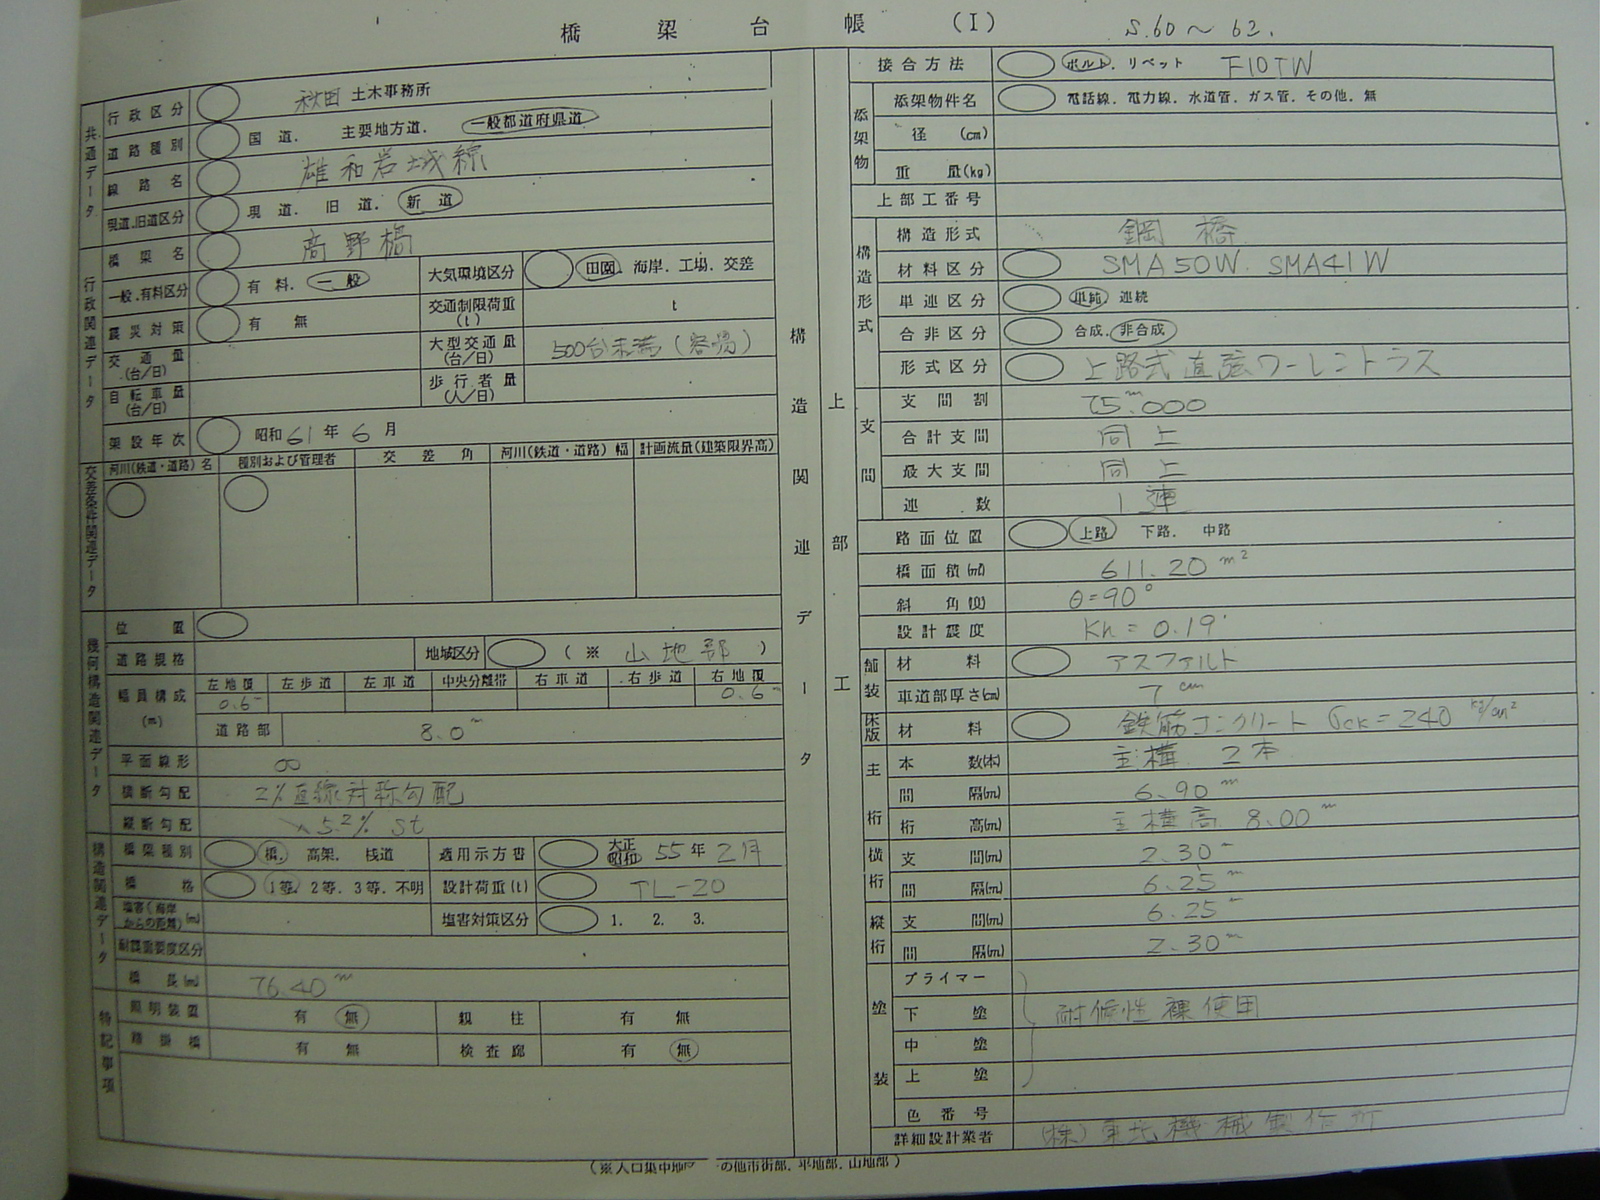 橋梁台帳 (I)
S.60～62.
共通データ
行政区分 秋田 土木事務所
道路種別 国道. 主要地方道. 一般都道府県道
線路名 雄和岩城線
現道.旧道区分 現道. 旧道. 新道
行政関連データ
橋梁名 高野橋
一般.有料区分 有料. 一般
大気環境区分 田園. 海岸. 工場. 交差
震災対策 有 無
交通制限荷重(t) t
交通量(台/日)
大型交通量(台/日) 500台未満
自転車量(台/日)
歩行者量(人/日)
架設年次 昭和61年6月
交差条件関連データ
河川(鉄道・道路)名 種別および管理者 交差角 河川(鉄道・道路)幅 計画流量(建築限界高)
幾何構造関連データ
位置
道路規格 地域区分 (※ 山地部)
幅員構成(m) 左地覆 左歩道 左車道 中央分離帯 右車道 右歩道 右地覆
0.6 0.6
道路部 8.0m
平面線形 ∞
横断勾配 2%直線対称勾配
縦断勾配 5.2% St
構造関連データ
橋梁種別 橋. 高架. 桟道 適用示方書 大正 昭和 55年2月
橋格 1等. 2等. 3等. 不明 設計荷重(t) TL-20
塩害(海岸からの距離)(m) 塩害対策区分 1. 2. 3.
耐震重要度区分
橋長(m) 76.40m
特記事項
照明装置 有 無 親柱 有 無
踏掛橋 有 無 検査廊 有 無
構造関連データ
上部工
接合方法 ボルト. リベット F10TW
添架物
添架物件名 電話線. 電力線. 水道管. ガス管. その他. 無
径(cm)
重量(kg)
上部工番号
構造形式
構造形式 鋼橋
材料区分 SMA50W. SMA41W
単連区分 単純 連続
合非区分 合成. 非合成
形式区分 上路式直弦ワーレントラス
支間
支間割 75m.000
合計支間 同上
最大支間 同上
連数 1連
路面位置 上路 下路. 中路
橋面積(㎡) 611.20 m²
斜角(度) θ=90°
設計震度 Kh=0.19
舗装
材料 アスファルト
車道部厚さ(cm) 7cm
床版
材料 鉄筋コンクリート σck=240 kg/cm²
主桁
本数(本) 主構 2本
間隔(m) 6.90m
桁高(m) 主構高 8.00m
横桁
支間(m) 2.30
間隔(m) 6.25m
縦桁
支間(m) 6.25
間隔(m) 2.30m
塗装
プライマー
下塗 耐候性裸使用
中塗
上塗
色番号
詳細設計業者 (株)東北機械製作所
(※人口集中地 の他市街部. 平地部. 山地部)